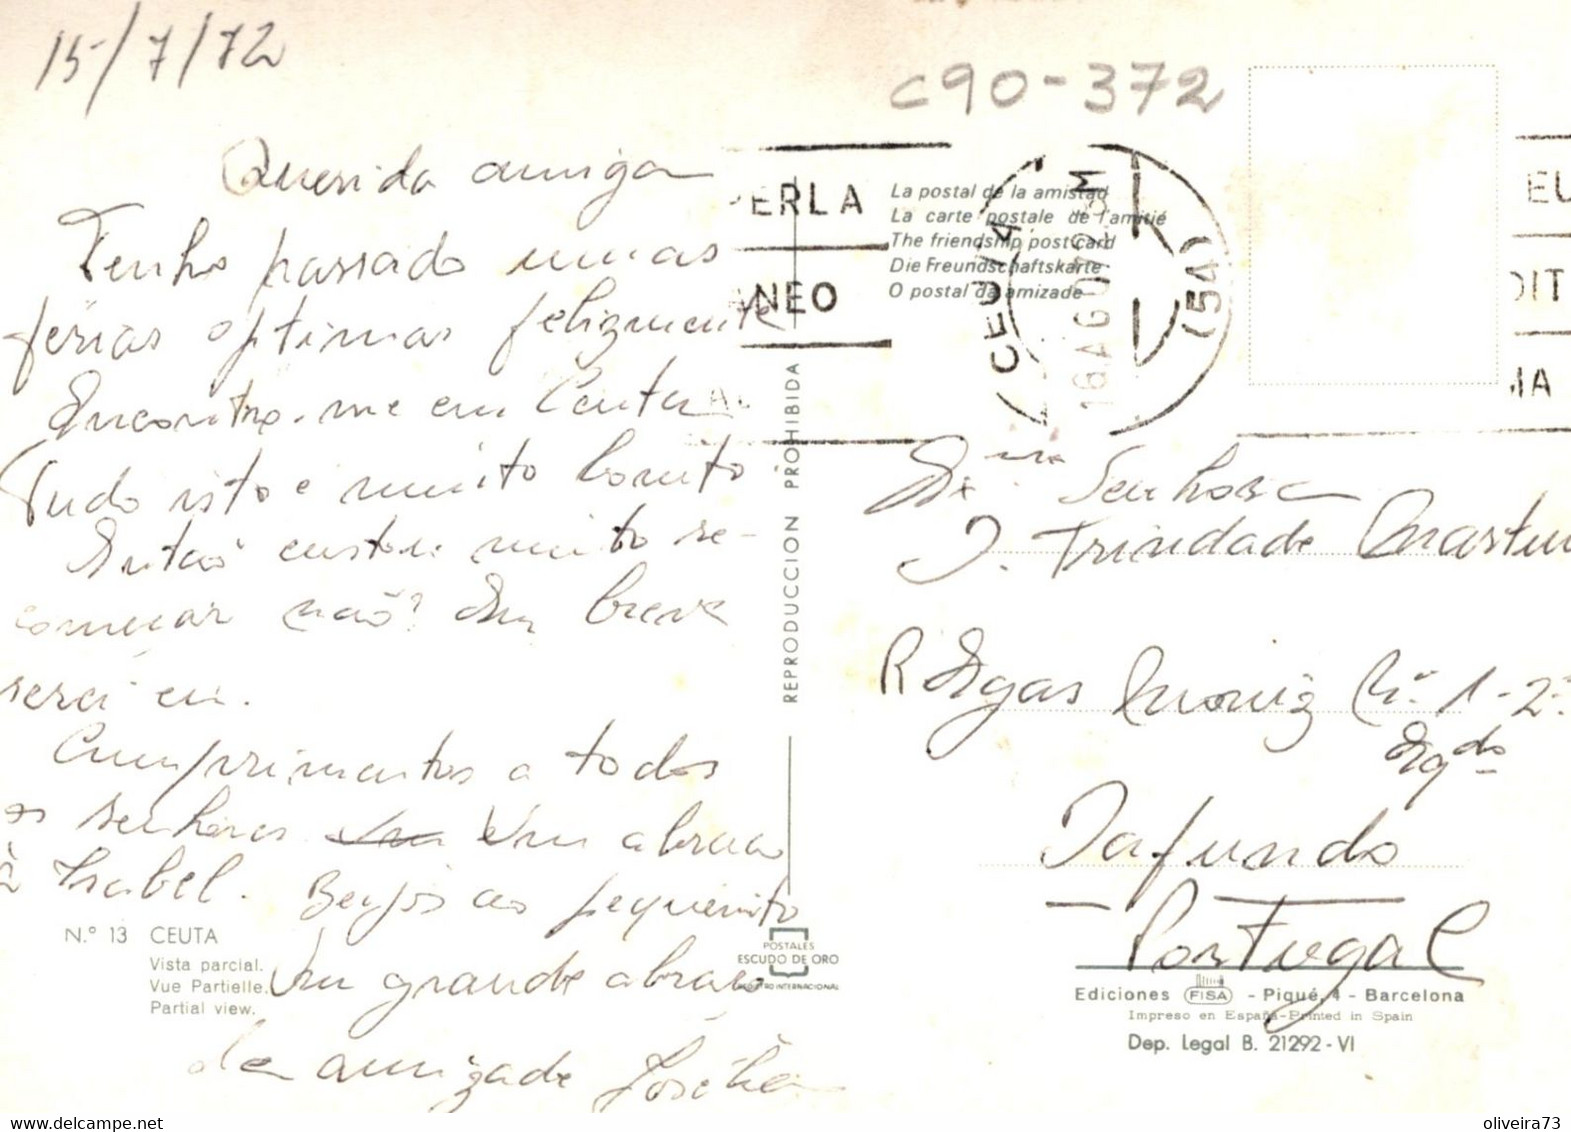 15/7/72
C90-372
Querida amiga
Tenho passado umas
férias optimas felizmente
Encontro-me em Ceuta
Tudo isto e muito bonito
Então custou muito re-
começar não? Em breve
serei eu.
Cumprimentos a todos
os senhores Um abraço
à Isabel. Beijos ao pequenito
Um grande abraço
de amizade
N.º 13 CEUTA
Vista parcial.
Vue Partielle.
Partial view.
PERLA
ANEO
CEUTA
16 AGO 72
(54)
EU
DIT
IA
La postal de la amistad
La carte postale de l'amitié
The friendship postcard
Die Freundschaftskarte
O postal da amizade
REPRODUCCION PROHIBIDA
POSTALES
ESCUDO DE ORO
REGISTRO INTERNACIONAL
Senhora
J. Trindade Martin
R Egas Moniz Nº 1-2º
Eqdo
Dafundo
Portugal
Ediciones FISA - Piqué, 4 - Barcelona
Impreso en España-Printed in Spain
Dep. Legal B. 21292-VI
oliveira73